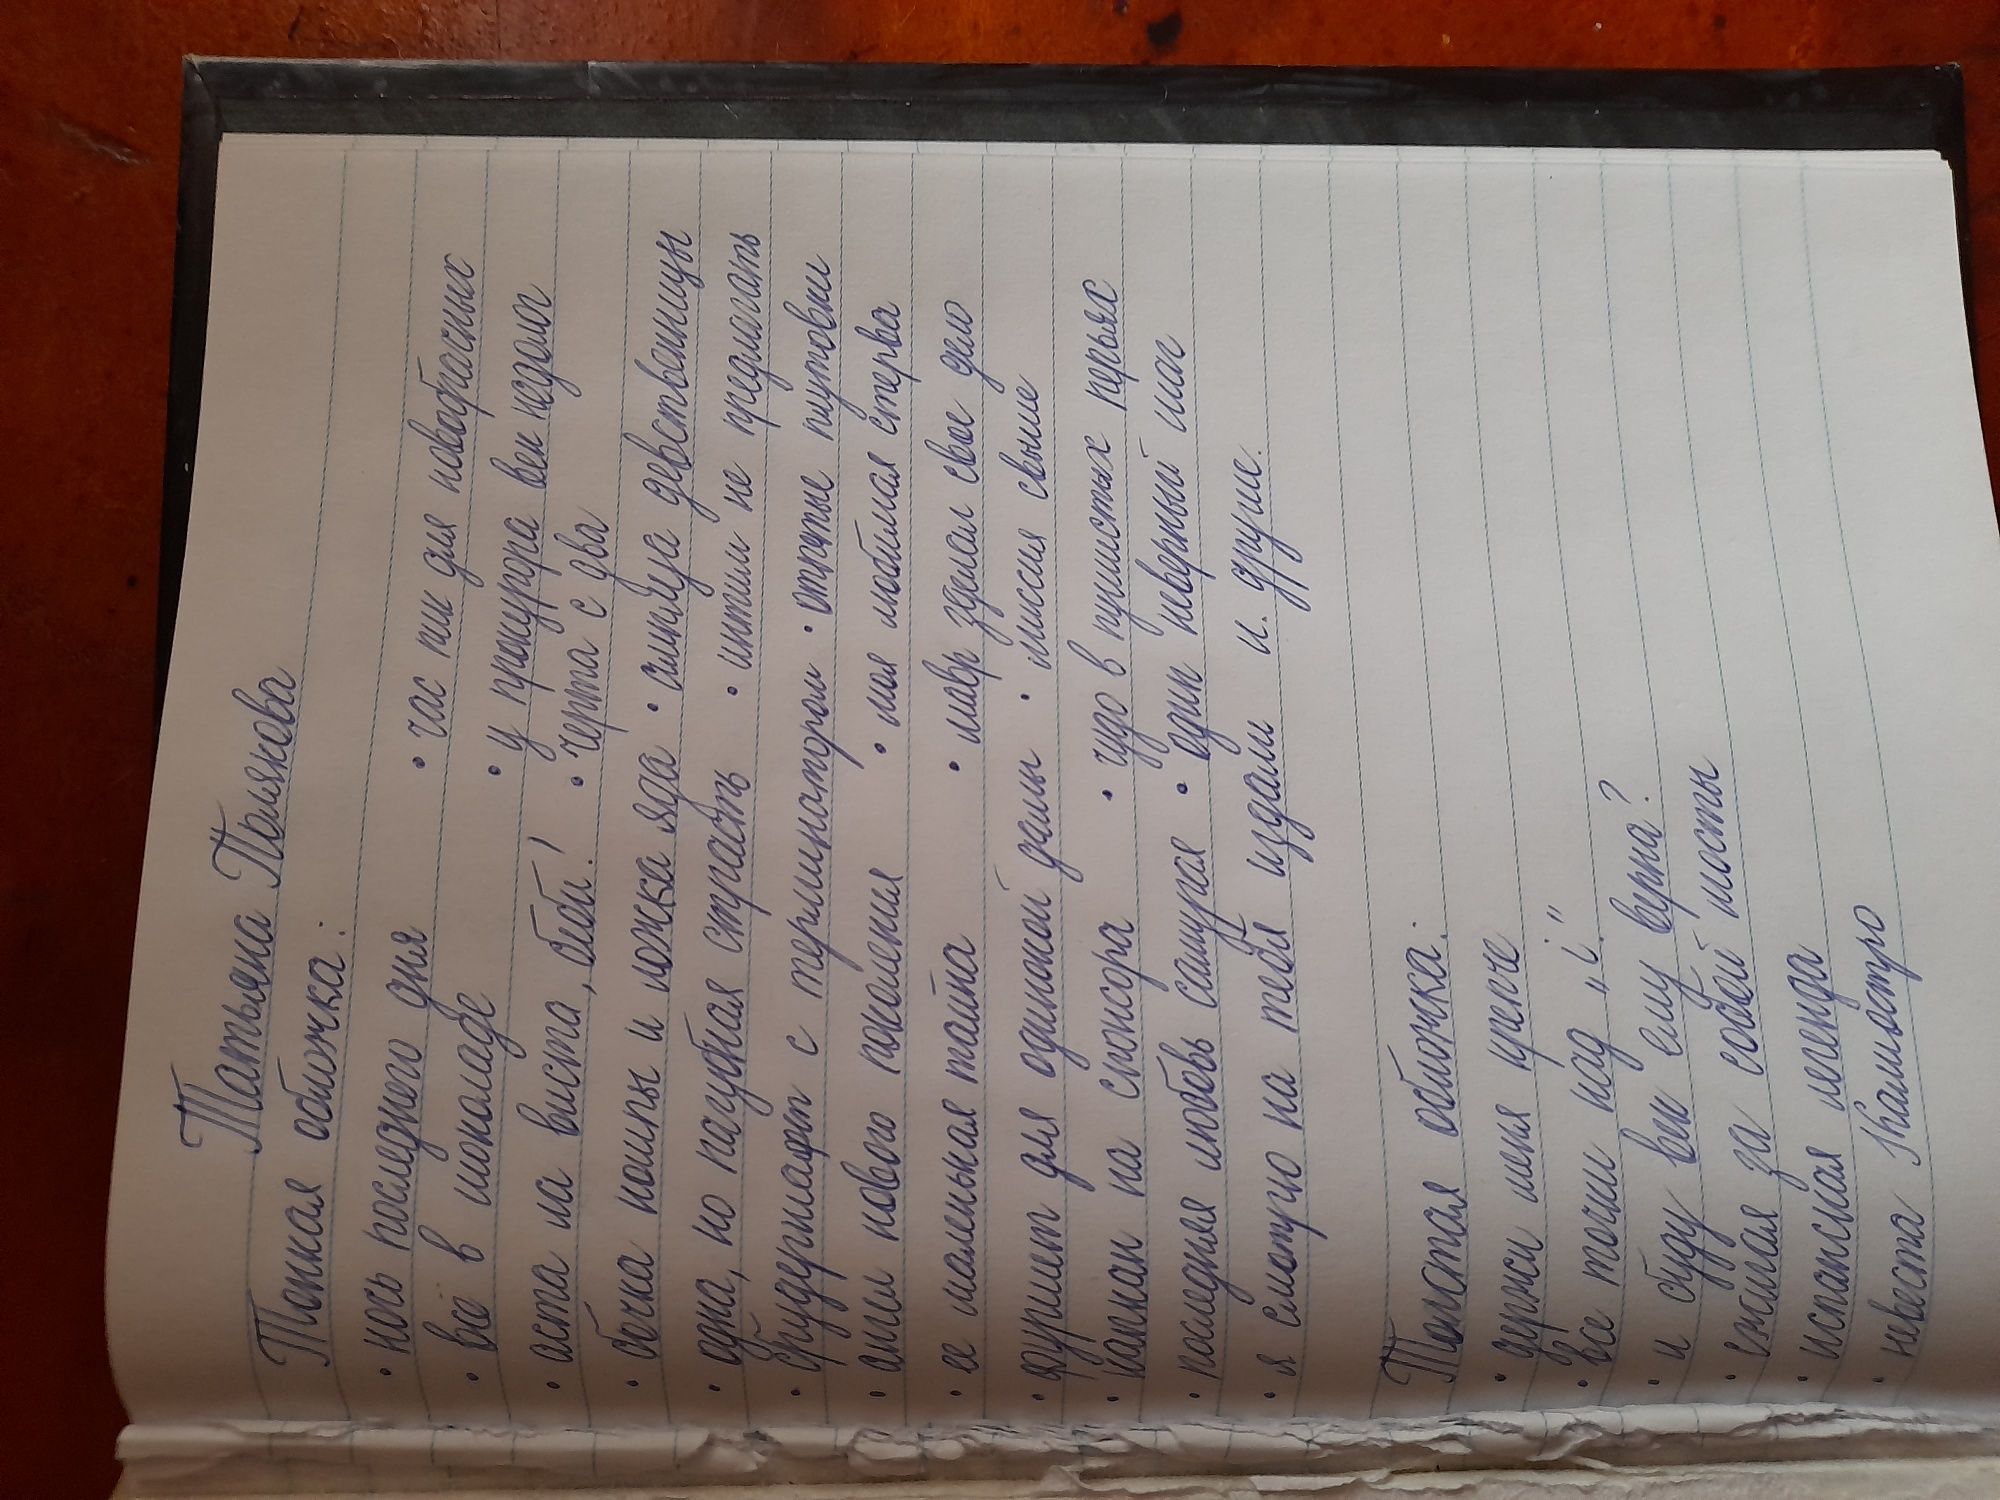 Татьяна Полякова
Тонкая обложка:
• ночь последнего дня • час пик для новобрачных
• все в шоколаде • у прокурора век недолог
• аста ла виста, беби! • черта с два
• бочка помпы и ложка яда • амплуа девственницы
• одна, но пагубная страсть • интим не предлагать
• брудершафт с терминатором • отпетые плутовки
• ангел нового поколения • моя любимая стерва
• ее маленькая тайна • мавр сделал свое дело
• фуршет для одинокой дамы • миссия свыше
• капкан на спонсора • чудо в пушистых перьях
• последняя любовь самурая • один неверный шаг
• я смотрю на тебя издали и. другие.
Толстая обложка:
• держи меня крепче
• все точки над „i."
• и буду век ему верна?
• сжигая за собой мосты
• испанская легенда
• невеста Калиостро